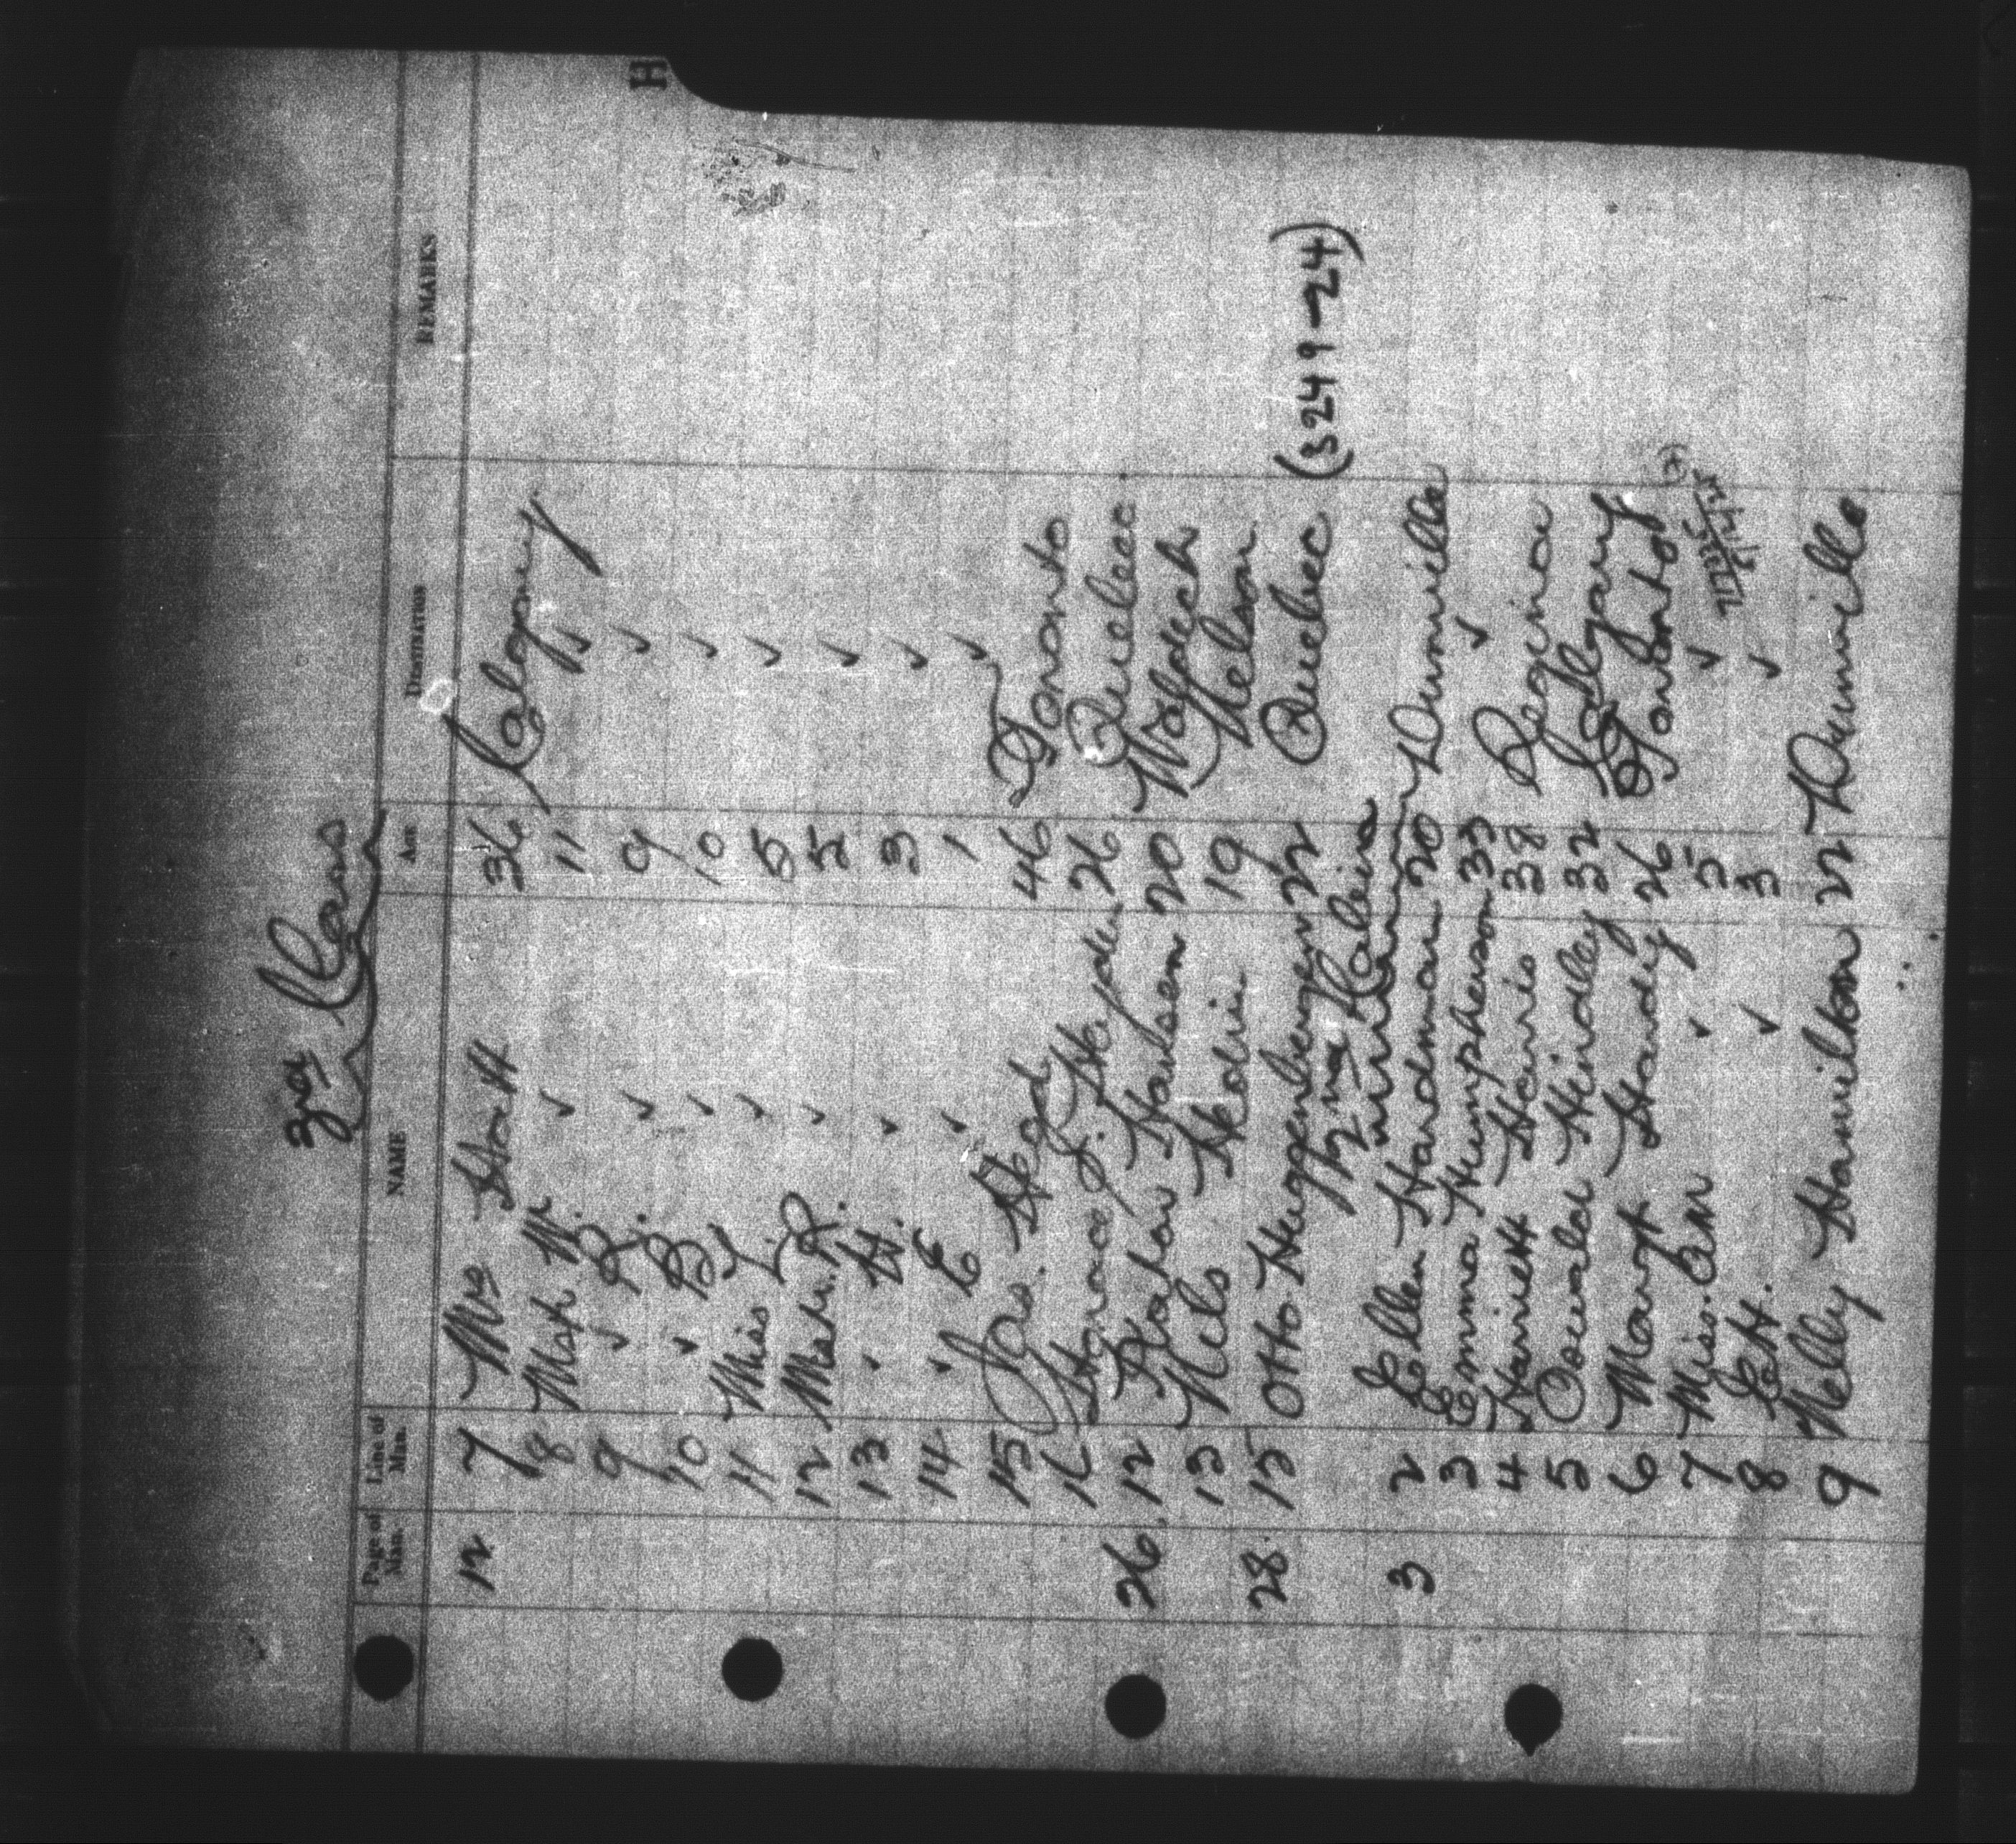 H
3rd Class
Page of Man. Line of Man. NAME AGE Destination REMARKS
12 7 Mrs Hatt 36 Calgary
8 Mstr W. ✓ 11 ✓
9 ✓ R. ✓ 9 ✓
10 ✓ B ✓ 10 ✓
11 Miss L ✓ 5 ✓
12 Mstr. R. ✓ 5 ✓
13 ✓ H. ✓ 3 ✓
14 ✓ E ✓ 1 ✓
15 Jas. Hogd 46 Toronto
16 Horace J. Hayden 26 Quebec
26. 12 Hansen 20 Waldeck
13 Nils Hedin 19 Nelson
28. 15 Otto Huggenberger 22 Quebec (3249-24)
2nd Cabin
3 2 Ellen Hardman 20 Dunnville
3 Emma Humpherson 33 ✓
4 Harriett Harris 38 Regina
5 Oswald Hindley 32 Calgary
6 Mary Handy 26 Toronto
7 Miss. EM ✓ 5 ✓
8 E.H. ✓ 3 ✓
9 Nelly Hamilton 22 Dunnville